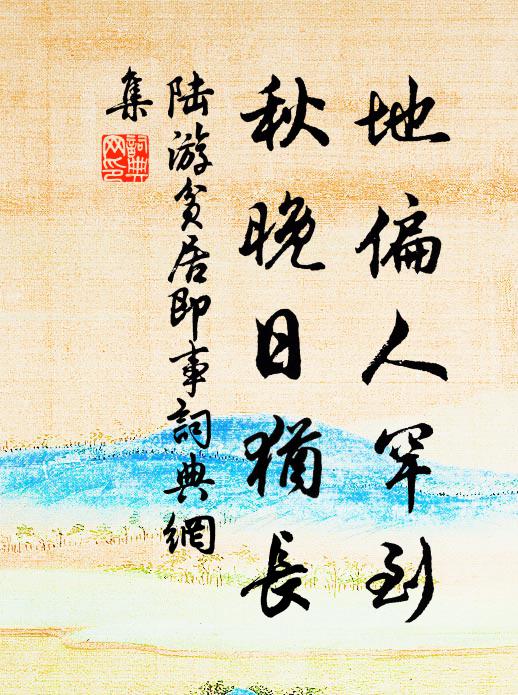 地偏人罕到
秋晚日猶長
陸游貧居即事詞典網
集
詞典
网印